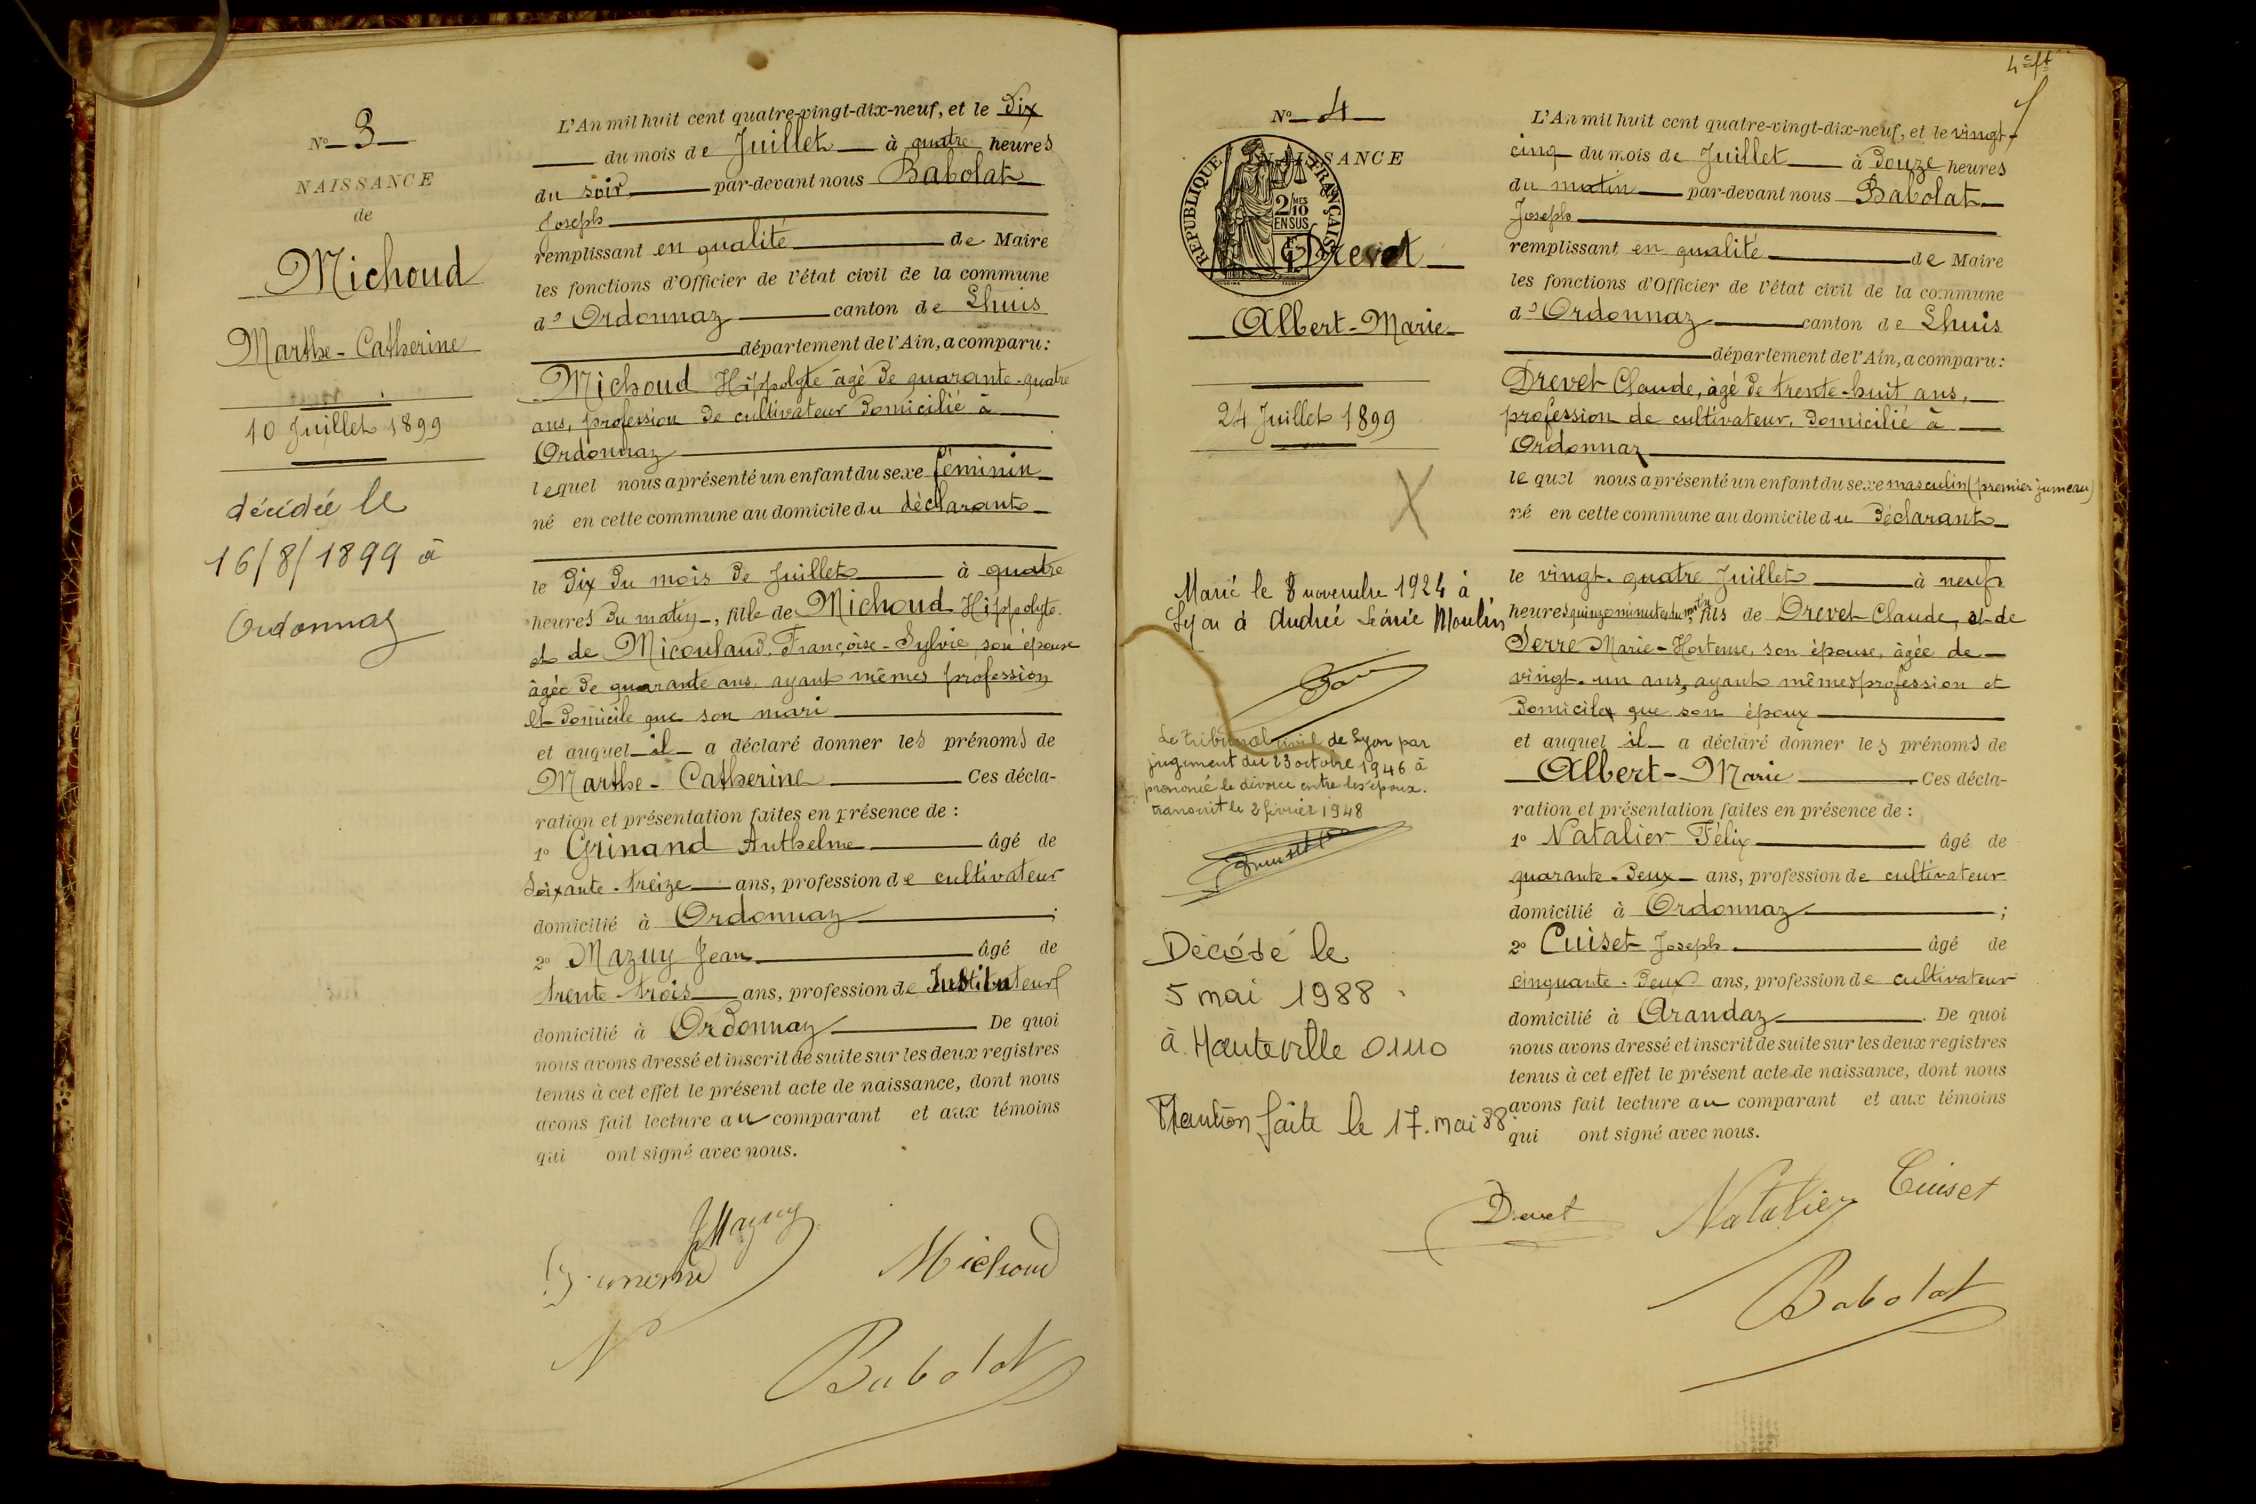 N° 3
NAISSANCE
de
Michoud
Marthe-Catherine
10 Juillet 1899
décédée le
16/8/1899 à
Ordonnaz
L'An mil huit cent quatre-vingt-dix-neuf, et le Dix
du mois de Juillet à quatre heures
du soir par-devant nous Babolat
Joseph
remplissant en qualité de Maire
les fonctions d'Officier de l'état civil de la commune
d'Ordonnaz canton de Lhuis
département de l'Ain, a comparu:
Michoud Hippolyte âgé de quarante-quatre
ans, profession de cultivateur domicilié à
Ordonnaz
lequel nous a présenté un enfant du sexe féminin
né en cette commune au domicile du déclarant
le dix du mois de Juillet à quatre
heures du matin, fille de Michoud Hippolyte
et de Micoulaud, Françoise-Sylvie son épouse
âgée de quarante ans, ayant mêmes profession
et domicile que son mari
et auquel il a déclaré donner les prénoms de
Marthe-Catherine Ces décla-
ration et présentation faites en présence de :
1° Grinand Anthelme âgé de
soixante-treize ans, profession de cultivateur
domicilié à Ordonnaz ;
2° Mazuy Jean âgé de
trente-trois ans, profession de Instituteur
domicilié à Ordonnaz De quoi
nous avons dressé et inscrit de suite sur les deux registres
tenus à cet effet le présent acte de naissance, dont nous
avons fait lecture au comparant et aux témoins
qui ont signé avec nous.
J Mazuy
Michoud
Babolat
4e ft
N° 4
NAISSANCE
RÉPUBLIQUE FRANÇAISE
2/10MES
EN SUS
Drevet
Albert-Marie
24 Juillet 1899
X
Marié le 8 novembre 1924 à
Lyon à Andrée Léonie Moulin
Le tribunal civil de Lyon par
jugement du 23 octobre 1946 à
prononcé le divorce entre les époux.
transcrit le 2 février 1948
Décédé le
5 mai 1988
à Hauteville 01110
Mention faite le 17. mai 88.
L'An mil huit cent quatre-vingt-dix-neuf, et le vingt-
cinq du mois de Juillet à Douze heures
du matin par-devant nous Babolat
Joseph
remplissant en qualité de Maire
les fonctions d'Officier de l'état civil de la commune
d'Ordonnaz canton de Lhuis
département de l'Ain, a comparu:
Drevet Claude, âgé de trente-huit ans,
profession de cultivateur, domicilié à
Ordonnaz
lequel nous a présenté un enfant du sexe masculin (premier jumeau)
né en cette commune au domicile du déclarant
le vingt-quatre Juillet à neuf
heures quinze minutes du matin, fils de Drevet Claude, et de
Serre Marie-Hortense, son épouse, âgée de
vingt-un ans, ayant mêmes profession et
domicile que son époux
et auquel il a déclaré donner les prénoms de
Albert-Marie Ces décla-
ration et présentation faites en présence de :
1° Natalier Félix âgé de
quarante-deux ans, profession de cultivateur
domicilié à Ordonnaz ;
2° Cuiset Joseph âgé de
cinquante-deux ans, profession de cultivateur
domicilié à Arandaz . De quoi
nous avons dressé et inscrit de suite sur les deux registres
tenus à cet effet le présent acte de naissance, dont nous
avons fait lecture au comparant et aux témoins
qui ont signé avec nous.
Drevet Natalier Cuiset
Babolat